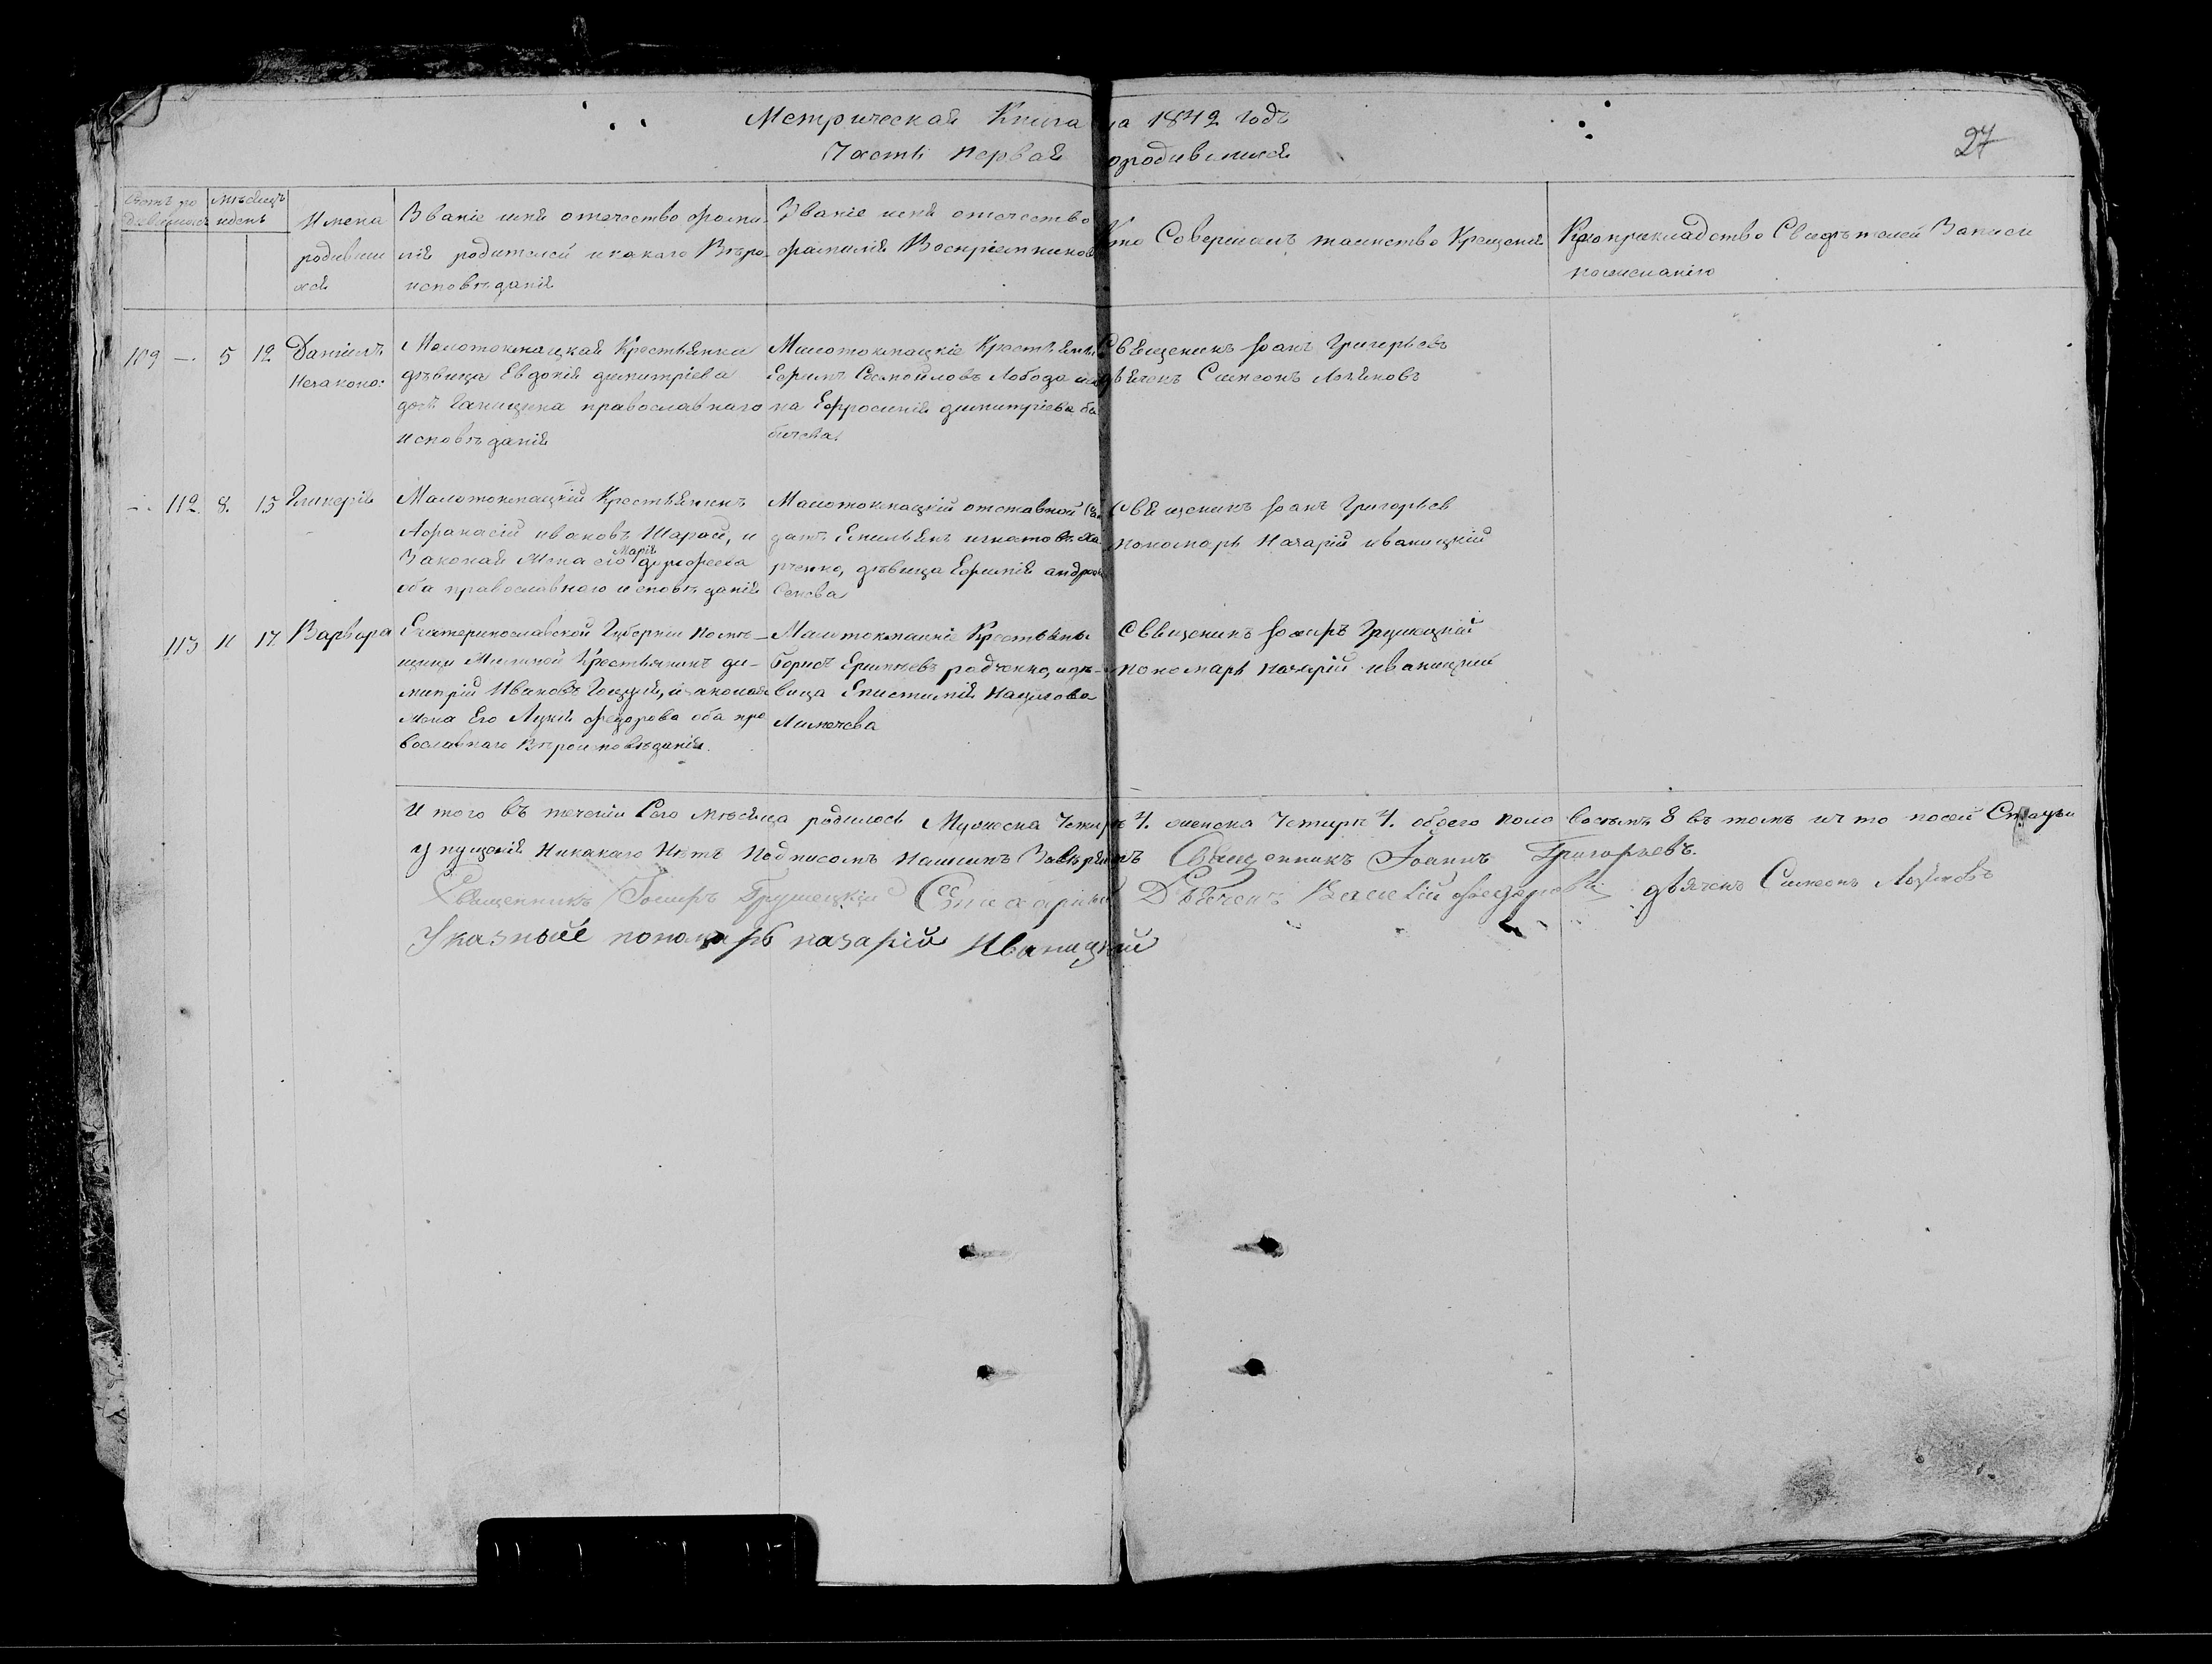 Метрическая Книга на 1842 годъ
Часть первая о родившихся
27
Счетъ ро
дившихся
Мѣсяцъ
и день
Имена
родивши
хся
Званіе имя отечество фами-
лія родителей и какаго Вѣро-
исповѣданія
Званіе имя отечество
фамилія Воспріемников
Кто Совершалъ таинство Крещенія
Рукоприкладство Свидѣтелей Записи
по желанію
109 — 5 12 Даніилъ
Незаконо:
Малотокмацкая Крестьянка
дѣвица Евдокія димитріева
дочь православнаго
исповѣданія
Малотокмацкіе Крестьяне
Ефимъ Самойловъ Лобода и
Ефросинія димитріева ба
бичева
Священикъ Іоанъ Григорьевъ
дьячекъ Симеонъ
— 112. 8. 15 Гликерія
Малотокмацкій Крестьянинъ
Афанасій ивановъ Шарай, и
Законая Жена его Марія дорофеева
оба православнаго исповѣданія
Малотокмацкій отставной Со
датъ Емильянъ игнатовъ Ха
рченко, дѣвица Ефимія андро
Священикъ Іоанъ Григорьев
пономарь Назарій иваницкій
113 11 17 Варвара
Екатеринославской Губерніи помѣ-
щици Крестьянинъ ди-
митрій Ивановъ и законая
жена Его Лукія федорова оба пра
вославнаго Вѣроисповѣданія.
Малотокмацкіе Крестьяны
Борисъ радченко, и дѣ-
вица Епистимія
Священикъ Іосифъ Грушецкій
пономарь Назарій иваницкій
И того въ теченіи Сего мѣсяца родилось Мужеска Четыре 4. женска Четыре 4. обоего пола восьмъ 8 въ томъ и что посей Статьи
упущенія Никакаго Нѣтъ Подписомъ Нашимъ Завѣряемъ Священникъ Іоаннъ Григорьевъ.
Священникъ Іосифъ Грушецкій Дьячекъ Василій дьячекъ Симеонъ
Указный пономарь назарій Иваницкій